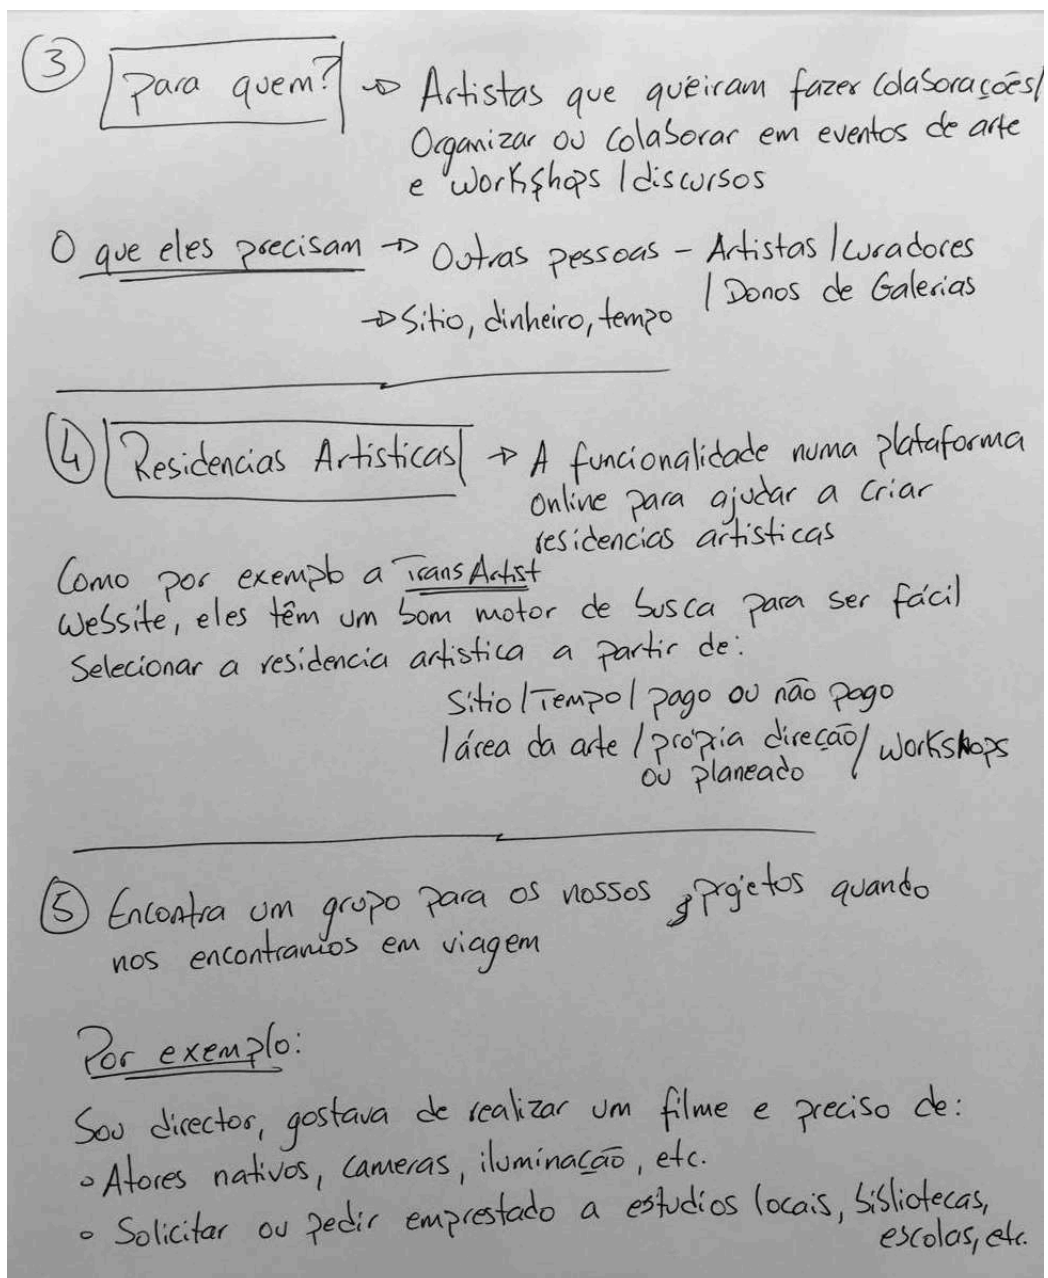 ③ Para quem? → Artistas que queiram fazer colaborações/
Organizar ou colaborar em eventos de arte
e workshops / discursos
O que eles precisam → Outras pessoas - Artistas / curadores
/ Donos de Galerias
→ Sitio, dinheiro, tempo
④ Residencias Artisticas → A funcionalidade numa plataforma
online para ajudar a criar
residencias artisticas
Como por exemplo a TransArtist
website, eles têm um bom motor de busca para ser fácil
Selecionar a residencia artistica a partir de:
Sitio / Tempo / pago ou não pago
/ área da arte / própria direção / workshops
ou planeado
⑤ Encontra um grupo para os nossos projetos quando
nos encontramos em viagem
Por exemplo:
Sou director, gostava de realizar um filme e preciso de:
◦ Atores nativos, cameras, iluminação, etc.
◦ Solicitar ou pedir emprestado a estudios locais, bibliotecas,
escolas, etc.